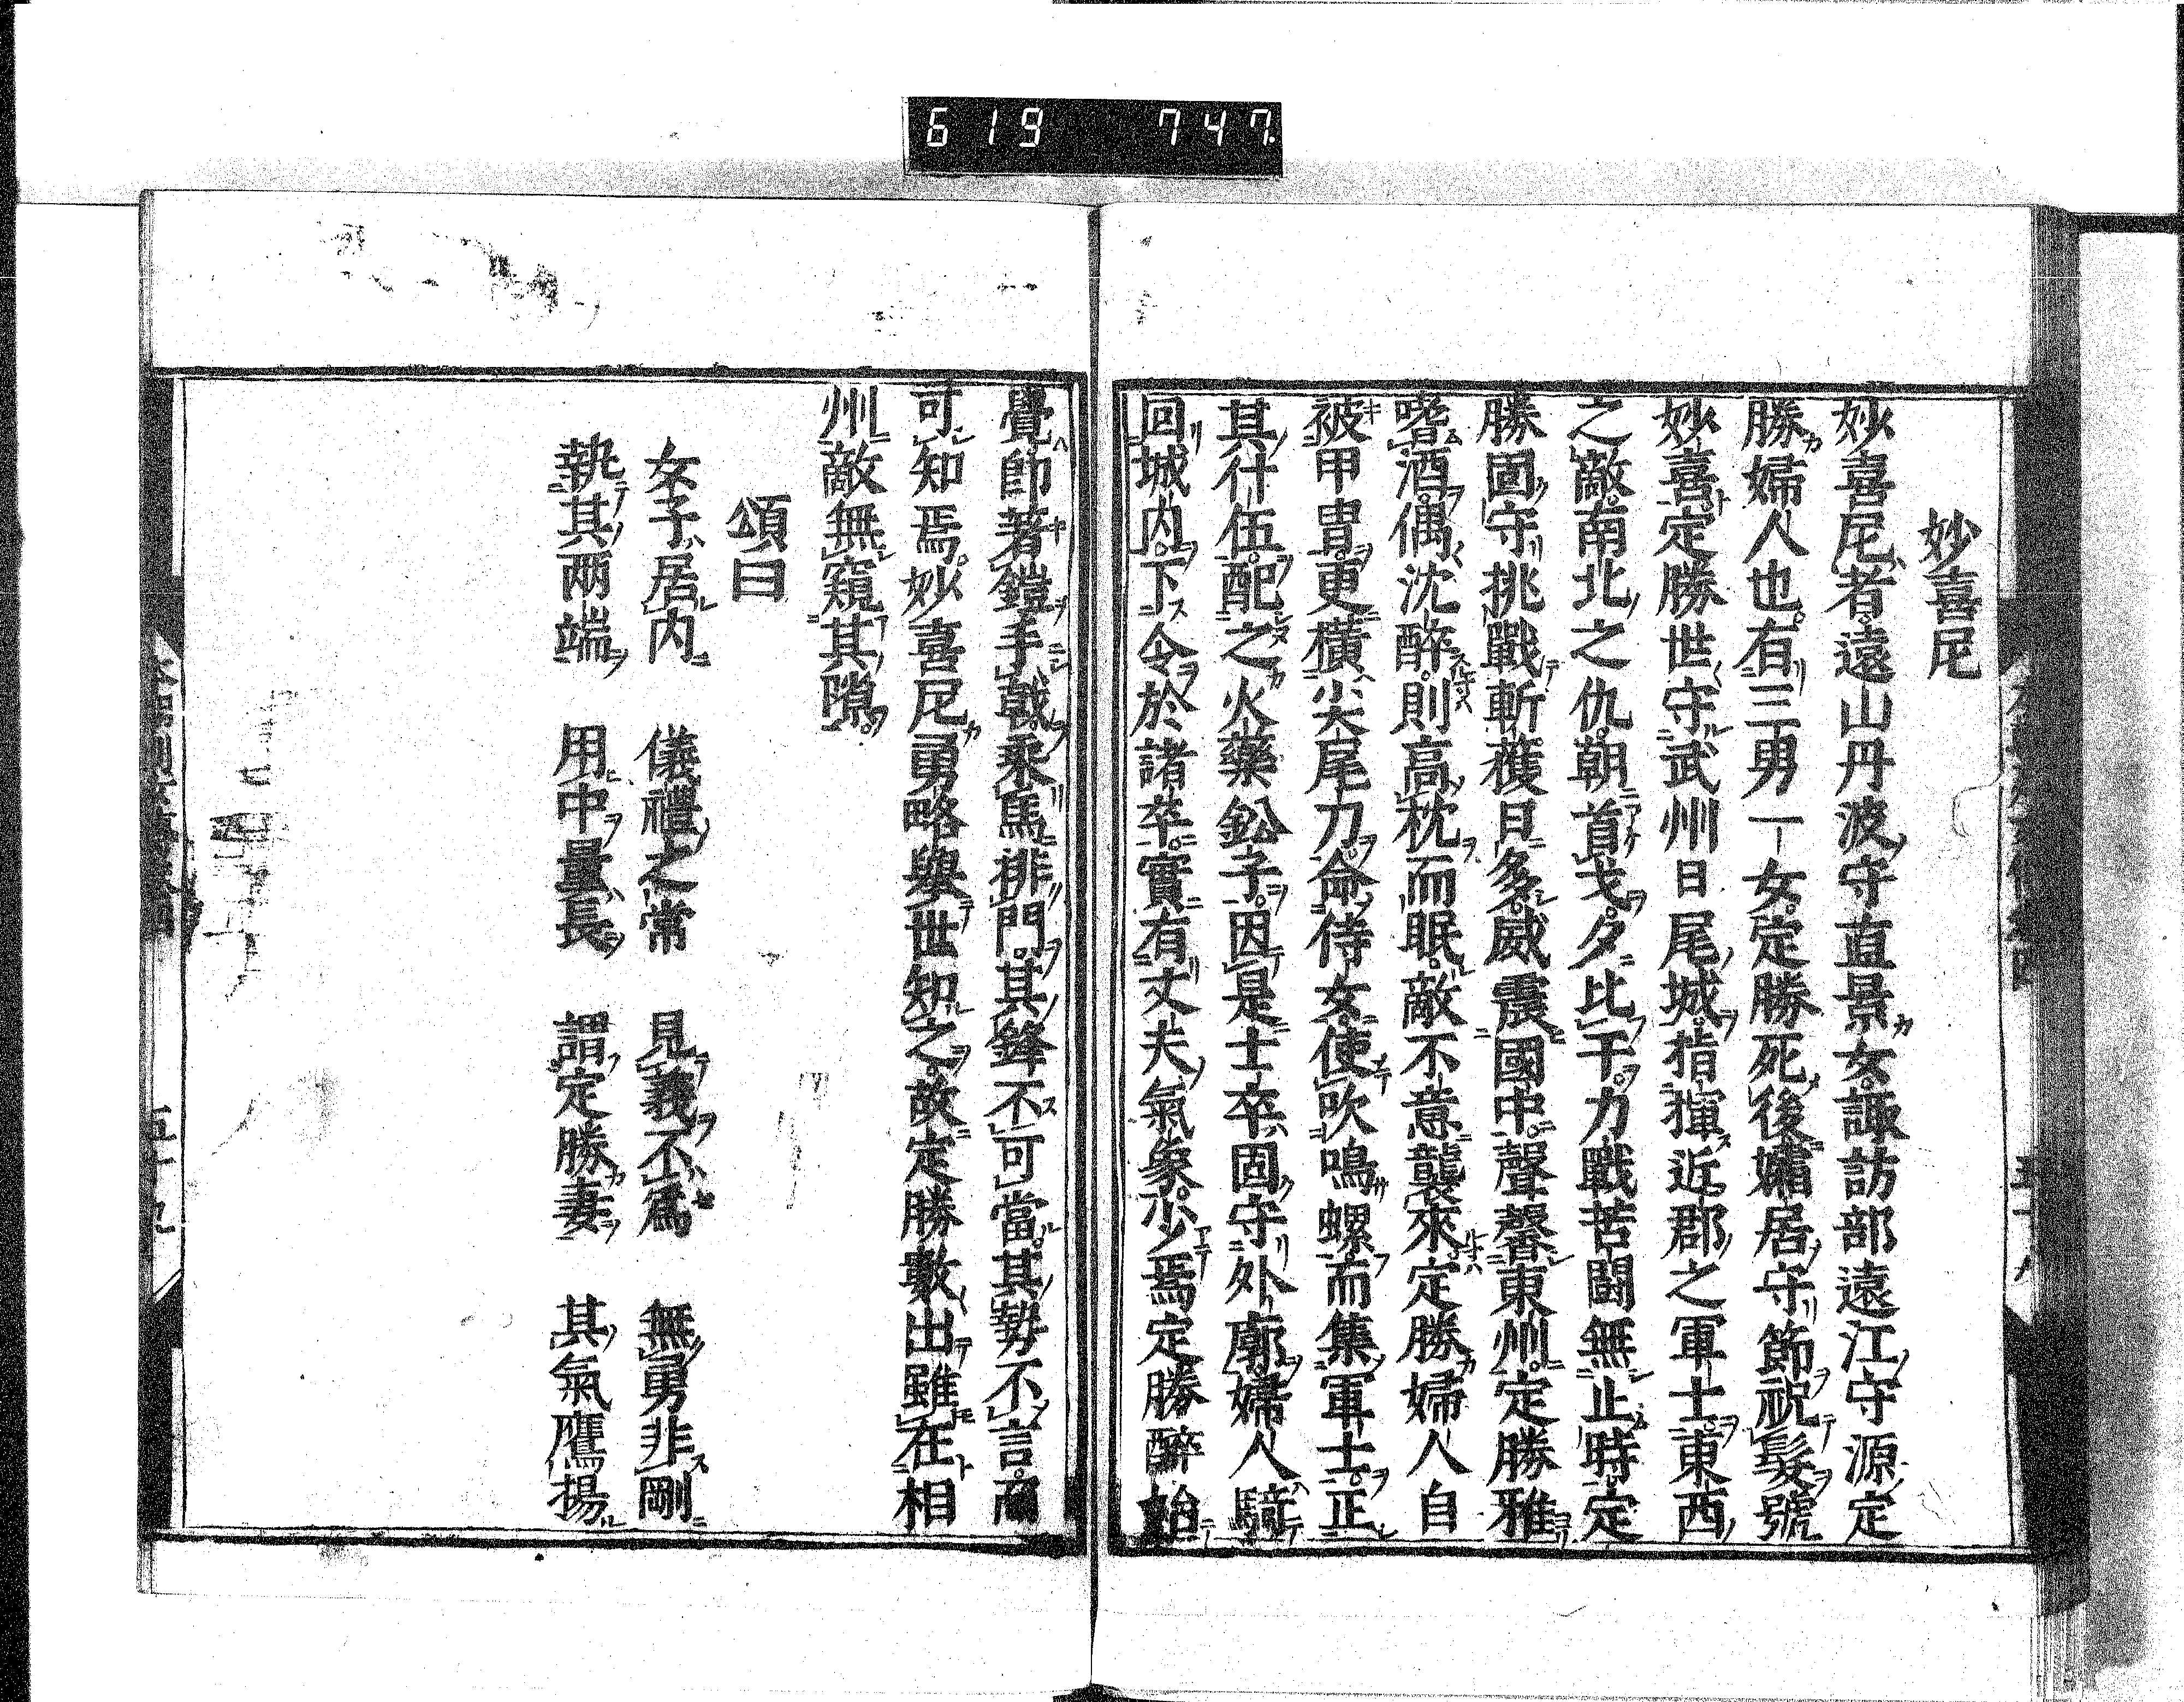 619 747
妙喜尼
妙喜尼者遠山丹波守直景女諏訪部遠江守源定
勝婦人也有三男一女定勝死後孀居守節祝髮號
妙喜定勝世守武州日尾城指揮近郡之軍士東西
之敵南北之仇朝首戈夕比干力戰苦鬪無止時定
勝固守挑戰斬獲日多威震國中聲馨東州定勝雅
嗜酒偶沈醉則高枕而眠敵不意襲來定勝婦人自
被甲冑更橫尖尾刀命侍女使吹鳴螺而集軍士正
其什伍配之火藥鈆子因是士卒固守外廓婦人騎
回城内下令於諸卒實有丈夫氣象少焉定勝醉始
覺卽著鎧手戟乘馬排門其鋒不可當其勢不言而
可知焉妙喜尼勇略擧世知之故定勝數出雖在相
州敵無窺其隙
頌曰
女子居内 儀禮之常 見義不爲 無勇非剛
執其兩端 用中量長 謂定勝妻 其氣鷹揚
五十九